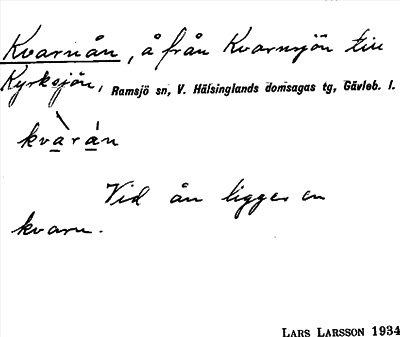 Kvarnån, å från Kvarnsjön till
Kyrksjön, Ramsjö sn, V. Hälsinglands domsagas tg, Gävleb. l.
kvàrán
Vid ån ligger en
kvarn.
LARS LARSSON 1934